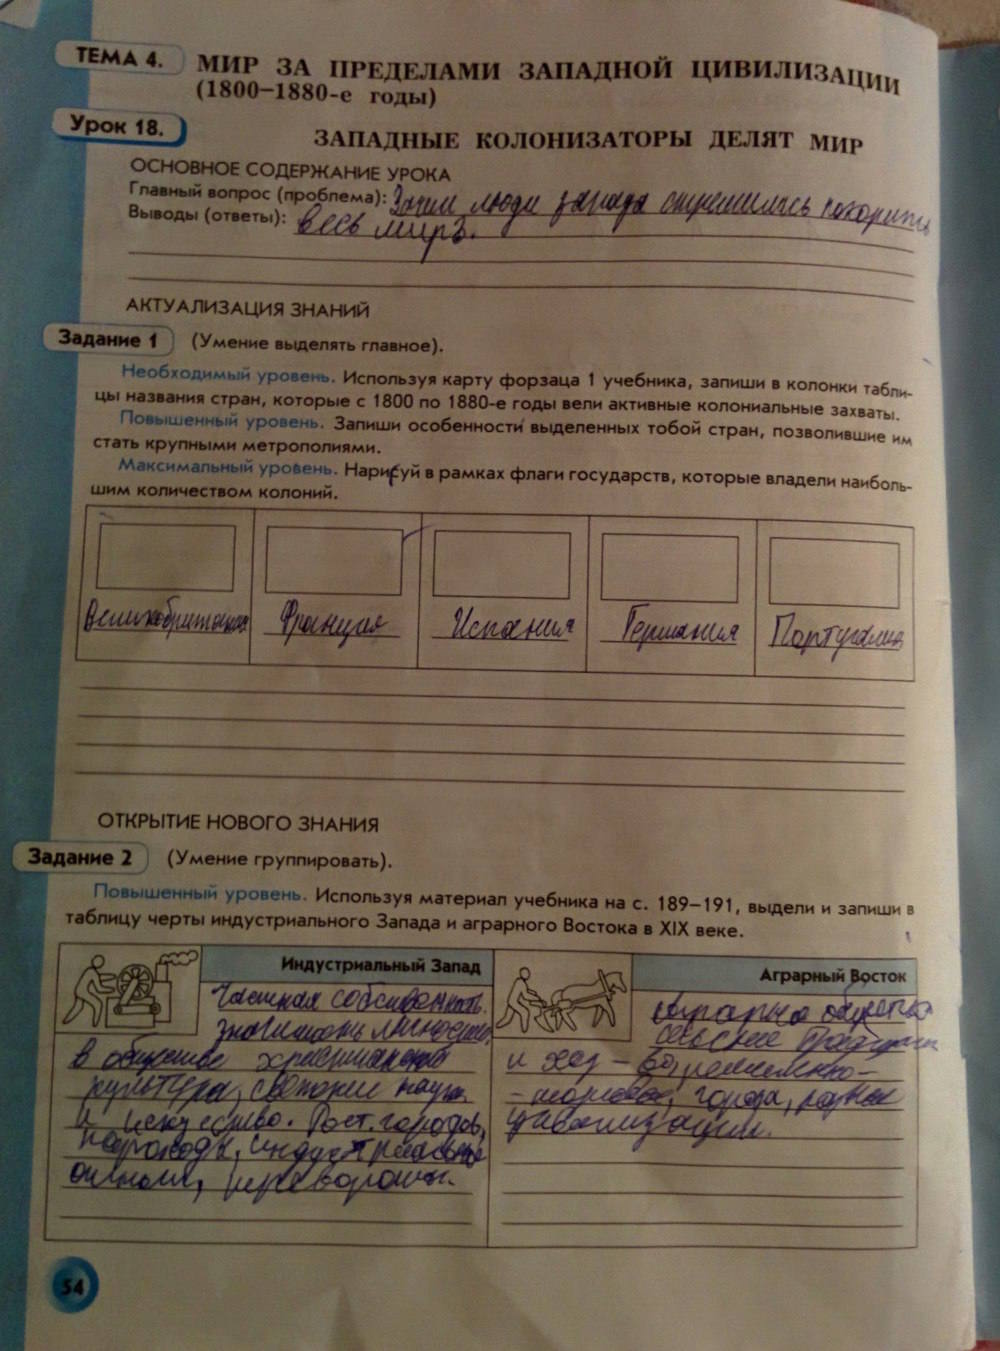 ТЕМА 4.
МИР ЗА ПРЕДЕЛАМИ ЗАПАДНОЙ ЦИВИЛИЗАЦИИ
(1800–1880-е годы)
Урок 18.
ЗАПАДНЫЕ КОЛОНИЗАТОРЫ ДЕЛЯТ МИР
ОСНОВНОЕ СОДЕРЖАНИЕ УРОКА
Главный вопрос (проблема): Зачем люди запада стремились покорить
Выводы (ответы): весь мир.
АКТУАЛИЗАЦИЯ ЗНАНИЙ
Задание 1 (Умение выделять главное).
Необходимый уровень. Используя карту форзаца 1 учебника, запиши в колонки табли-
цы названия стран, которые с 1800 по 1880-е годы вели активные колониальные захваты.
Повышенный уровень. Запиши особенности выделенных тобой стран, позволившие им
стать крупными метрополиями.
Максимальный уровень. Нарисуй в рамках флаги государств, которые владели наиболь-
шим количеством колоний.
Великобритания Франция Испания Германия Португалия
ОТКРЫТИЕ НОВОГО ЗНАНИЯ
Задание 2 (Умение группировать).
Повышенный уровень. Используя материал учебника на с. 189–191, выдели и запиши в
таблицу черты индустриального Запада и аграрного Востока в XIX веке.
Индустриальный Запад
Частная собственность.
значимость личности
в обществе христианской
культура, светские наука
и искусство. Рост городов,
пароходы, индустриальные
перевороты.
Аграрный Восток
аграрно
сельские
и хоз –
города,
цивилизации.
54